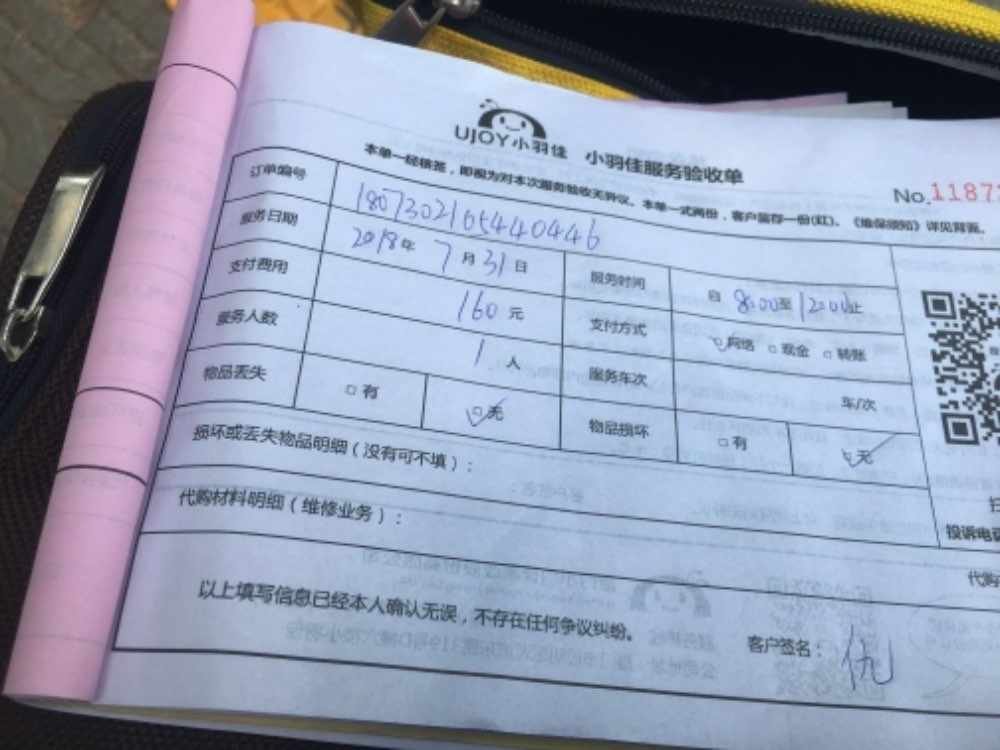 UJOY小羽佳 小羽佳服务验收单
No.1187
本单一经核签，即视为对本次服务验收无异议。本单一式两份，客户留存一份(红)。《维保须知》详见背面。
订单编号 1807302165440446
服务日期 2018年 7月31日 服务时间 自 8:00至12:00止
支付费用 160元 支付方式 网络 现金 转账
服务人数 1人 服务车次 车/次
物品丢失 有 无 物品损坏 有 无
损坏或丢失物品明细（没有可不填）：
投诉电
代购材料明细（维修业务）：
代购
以上填写信息已经本人确认无误，不存在任何争议纠纷。
客户签名：